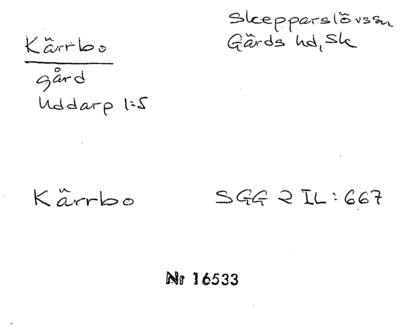 Kärrbo
gård
Uddarp 1:5
Skepparslövs sn
Gärds hd, Sk
Kärrbo
SGG 2 IL: 667
Nr 16533